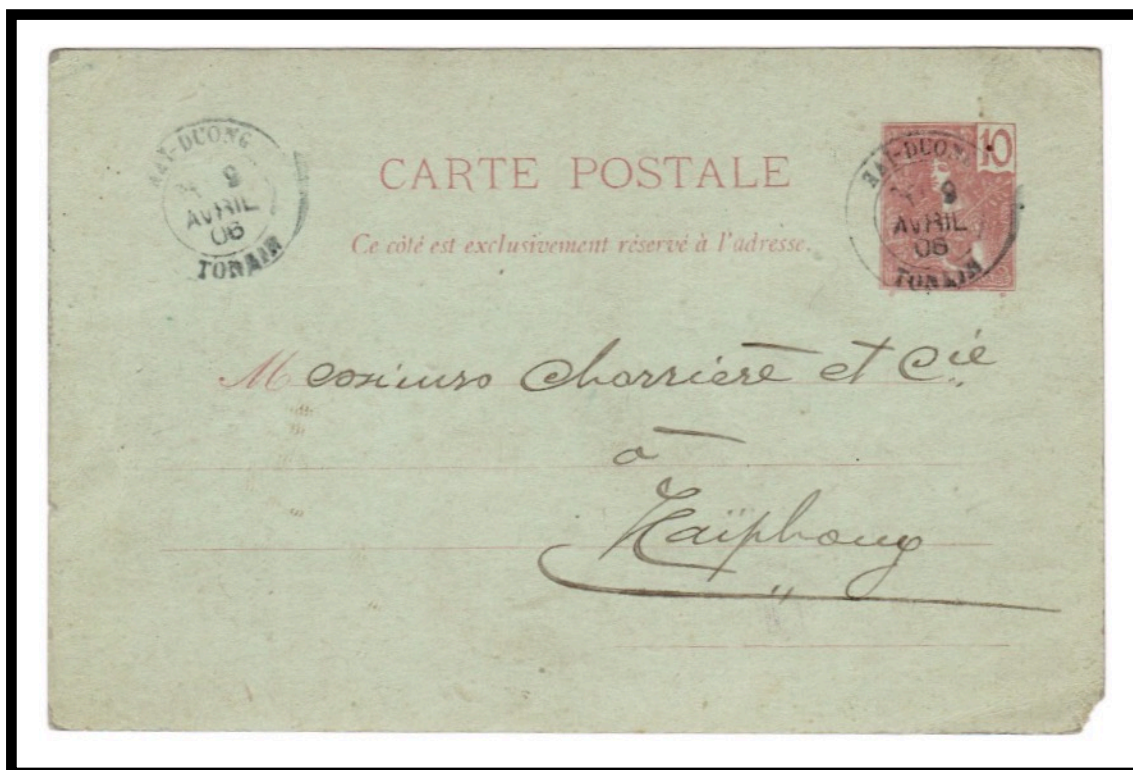 HAI-DUONG
9
AVRIL
06
TONKIN
CARTE POSTALE
Ce côté est exclusivement réservé à l'adresse.
10
HAI-DUONG
9
AVRIL
06
TONKIN
Messieurs Charrière et Cie
à
Haïphong